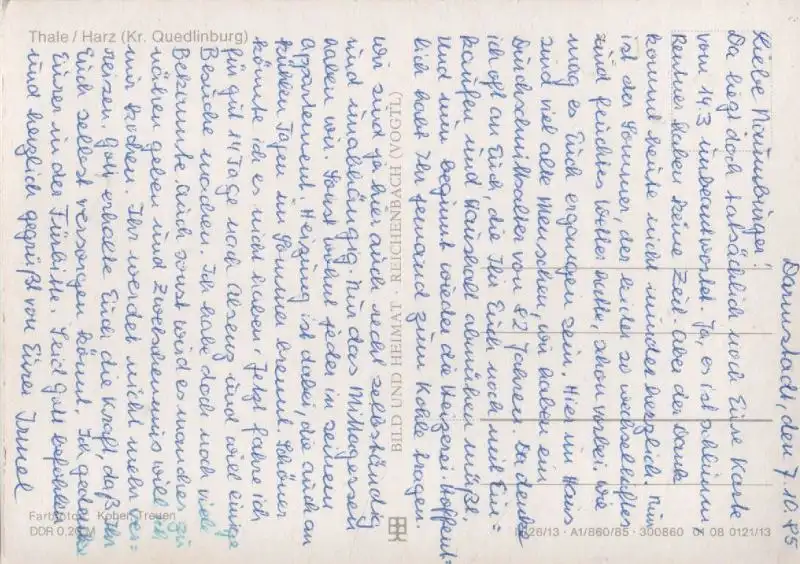 Thale / Harz (Kr. Quedlinburg)
Darmstadt, den 7.10.85
Liebe Naumbürger!
Da liegt doch tatsächlich noch Eure Karte
vom 14.3 unbeantwortet. Ja, es ist schlimm
Rentner haben keine Zeit aber der Dank
kommt heute nicht minder herzlich. Nun
ist der Sommer, der leider so wechselhaftes
und feuchtes Wetter hatte, schon vorbei. Wie
mag es Euch ergangen sein. Hier im Haus
sind viel alte Menschen, wir haben ein
Durchschnittsalter von 82 Jahren. Da denke
ich oft an Euch, die Ihr Euch noch mit Ein=
kaufen und Hausrat abmühen müßt.
Und nun beginnt wieder die Heizerei. Hoffent=
lich habt Ihr jemand zum Kohle tragen.
Wir sind ja hier auch recht selbständig
und unabhängig. Nur das Mittagessen
haben wir. Sonst wohnt jeder in seinem
Appartement. Heizung ist dabei, die auch an
kühlen Tagen im Sommer brennt. Schöner
könnte ich es nicht haben. Jetzt fahre ich
für gut 14 Tage nach und will einige
Besuche machen. Ich habe doch noch viele
Bekannte. Auch sonst wird es manches zu
nähen geben und zwischenrein will ich
nur kochen. Ihr werdet nicht mehr ver=
reisen. Gott erhalte Euch die Kraft, daß Ihr
Euch selbst versorgen könnt. Ich gedenke
Eurer in der Fürbitte. Seid Gott befohlen
und herzlich gegrüßt von Eurer Irmel
BILD UND HEIMAT REICHENBACH (VOGTL)
Farbfoto: Kober, Treuen
DDR 0.20 M
26/13 · A1/860/85 · 300860 08 0121/13